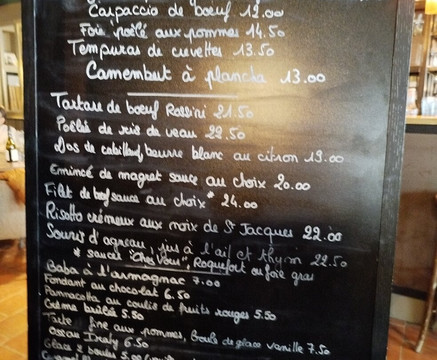 Carpaccio de boeuf 12.00
Foie poêlé aux pommes 14.50
Tempuras de crevettes 13.50
Camembert à plancha 13.00
Tartare de boeuf Rossini 21.50
Poêlée de ris de veau 22.50
Dos de cabillaud, beurre blanc au citron 19.00
Emincé de magret sauce au choix 20.00
Filet de boeuf sauce au choix* 24.00
Risotto crémeux aux noix de St Jacques 22.00
Souris d'agneau, jus à l'ail et thym 22.50
* sauces "Chez Vous", Roquefort ou foie gras
Baba à l'armagnac 7.00
Fondant au chocolat 6.50
Pannacotta au coulis de fruits rouges 5.50
Crème brûlée 5.50
Tarte fine aux pommes, boule de glace vanille 7.50
Ossau Iraty 6.50
Glace 2 boules 5.00